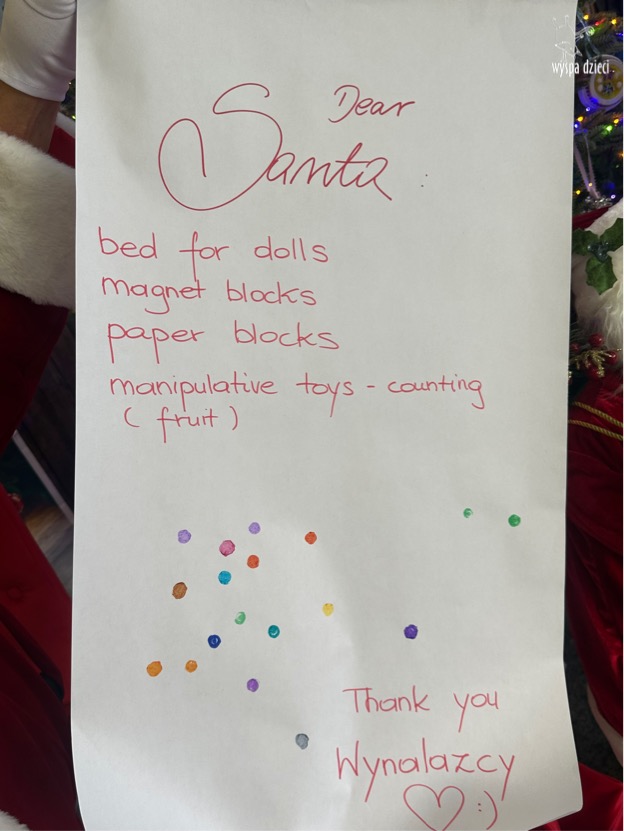 wyspa dzieci
Dear
Santa :
bed for dolls
magnet blocks
paper blocks
manipulative toys - counting
( fruit )
Thank you
Wynalazcy
♡ :)